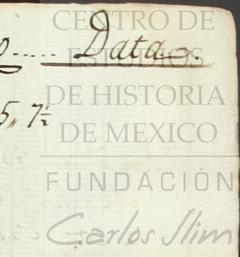 CENTRO DE
ESTUDIOS
DE HISTORIA
DE MEXICO
FUNDACIÓN
Carlos Slim
o..... Data.
5,, 7½